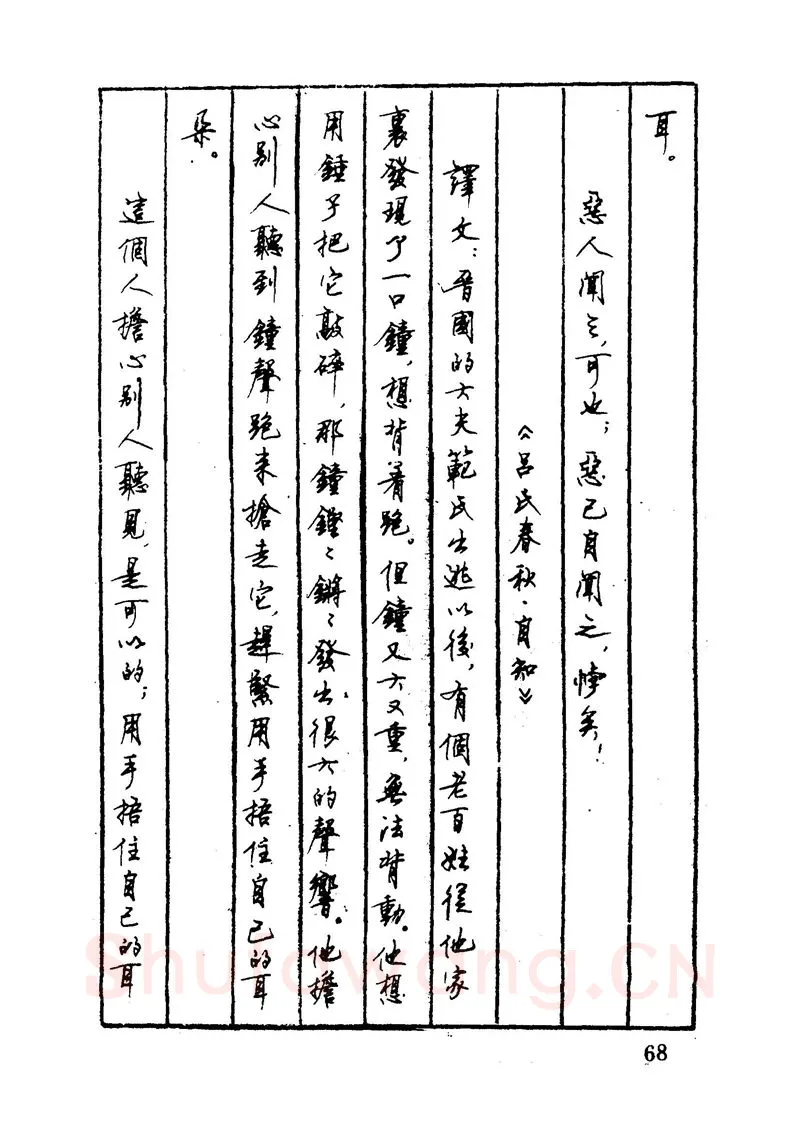 耳。
惡人聞之,可也;惡己自聞之,悖矣!
《呂氏春秋·自知》
譯文:晉國的大夫範氏出逃以後,有個老百姓從他家
裏發現了一口鐘,想背着跑。但鐘又大又重,無法背動。他想
用錘子把它敲碎,那鐘鏗〻鏘〻發出很大的聲響。他擔
心別人聽到鐘聲跑来搶走它,趕緊用手捂住自己的耳
朵。
這個人擔心別人聽見,是可以的;用手捂住自己的耳
68
Shufawang.CN